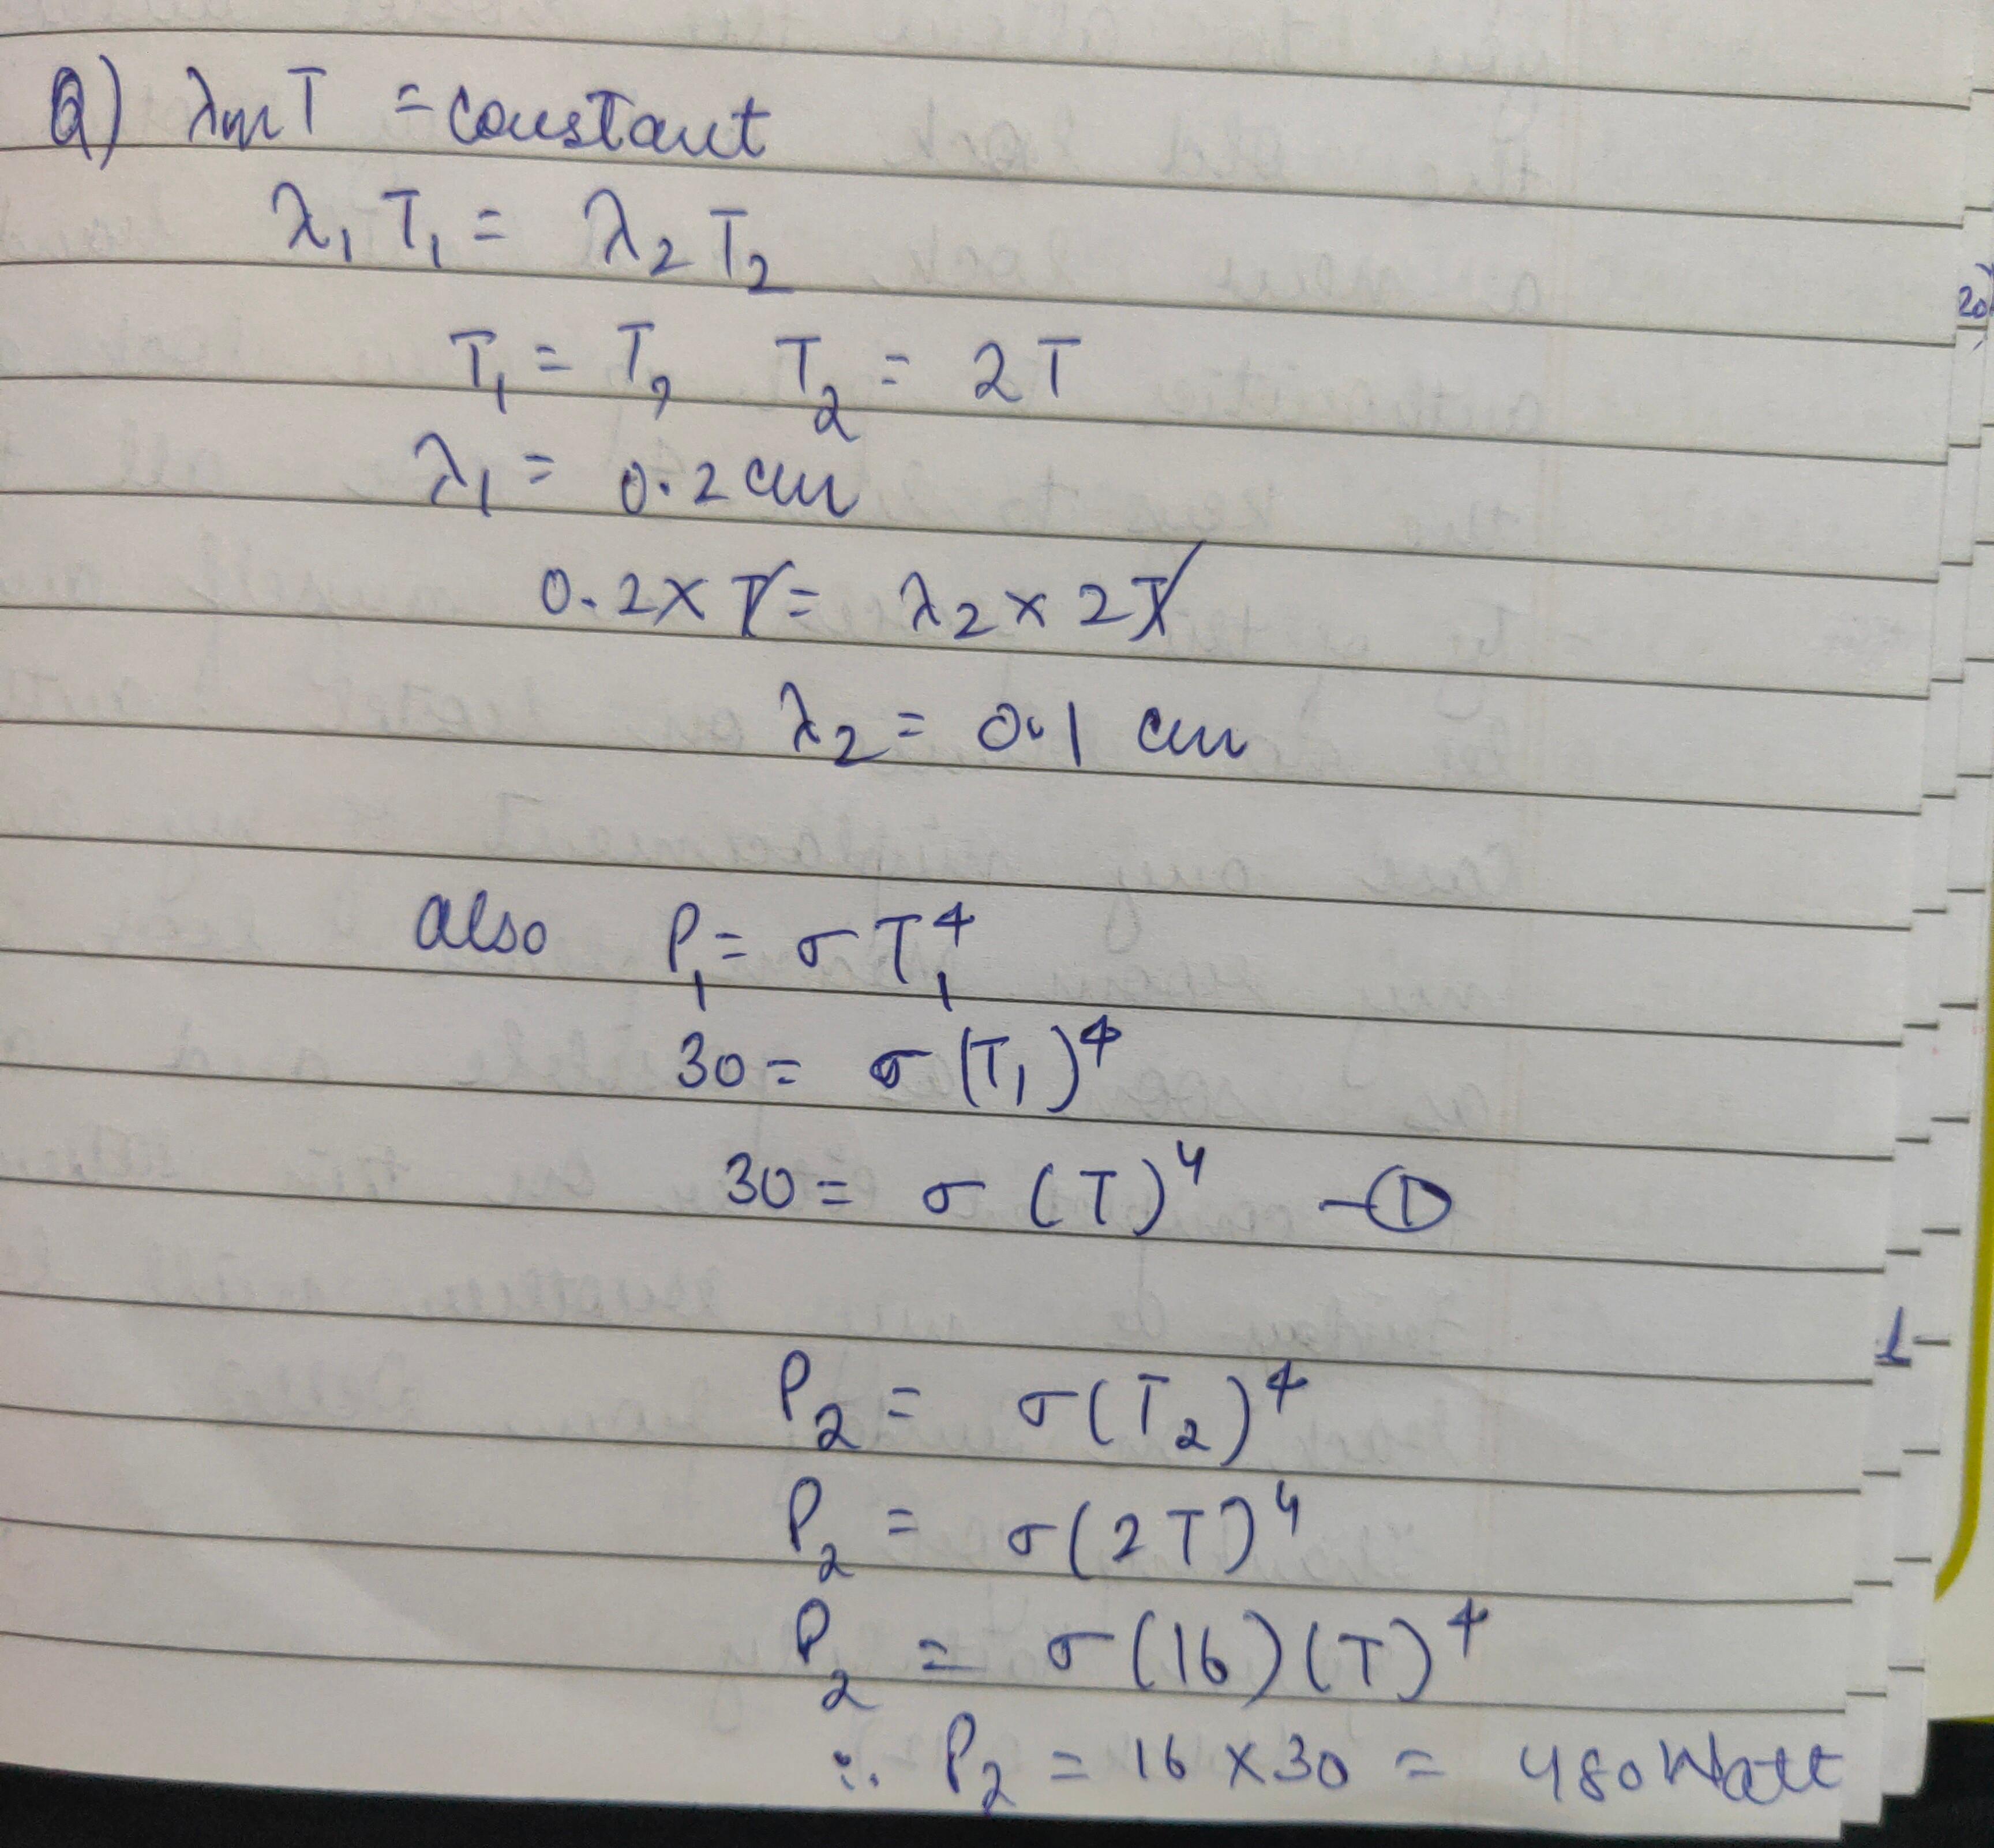 Q) λm T = constant
λ1 T1 = λ2 T2
T1 = T, T2 = 2T
λ1 = 0.2 cm
0.2 × T = λ2 × 2T
λ2 = 0.1 cm
also P1 = σ T1^4
30 = σ (T1)^4
30 = σ (T)^4 —①
P2 = σ(T2)^4
P2 = σ(2T)^4
P2 = σ(16)(T)^4
∴ P2 = 16 × 30 = 480 Watt
20)